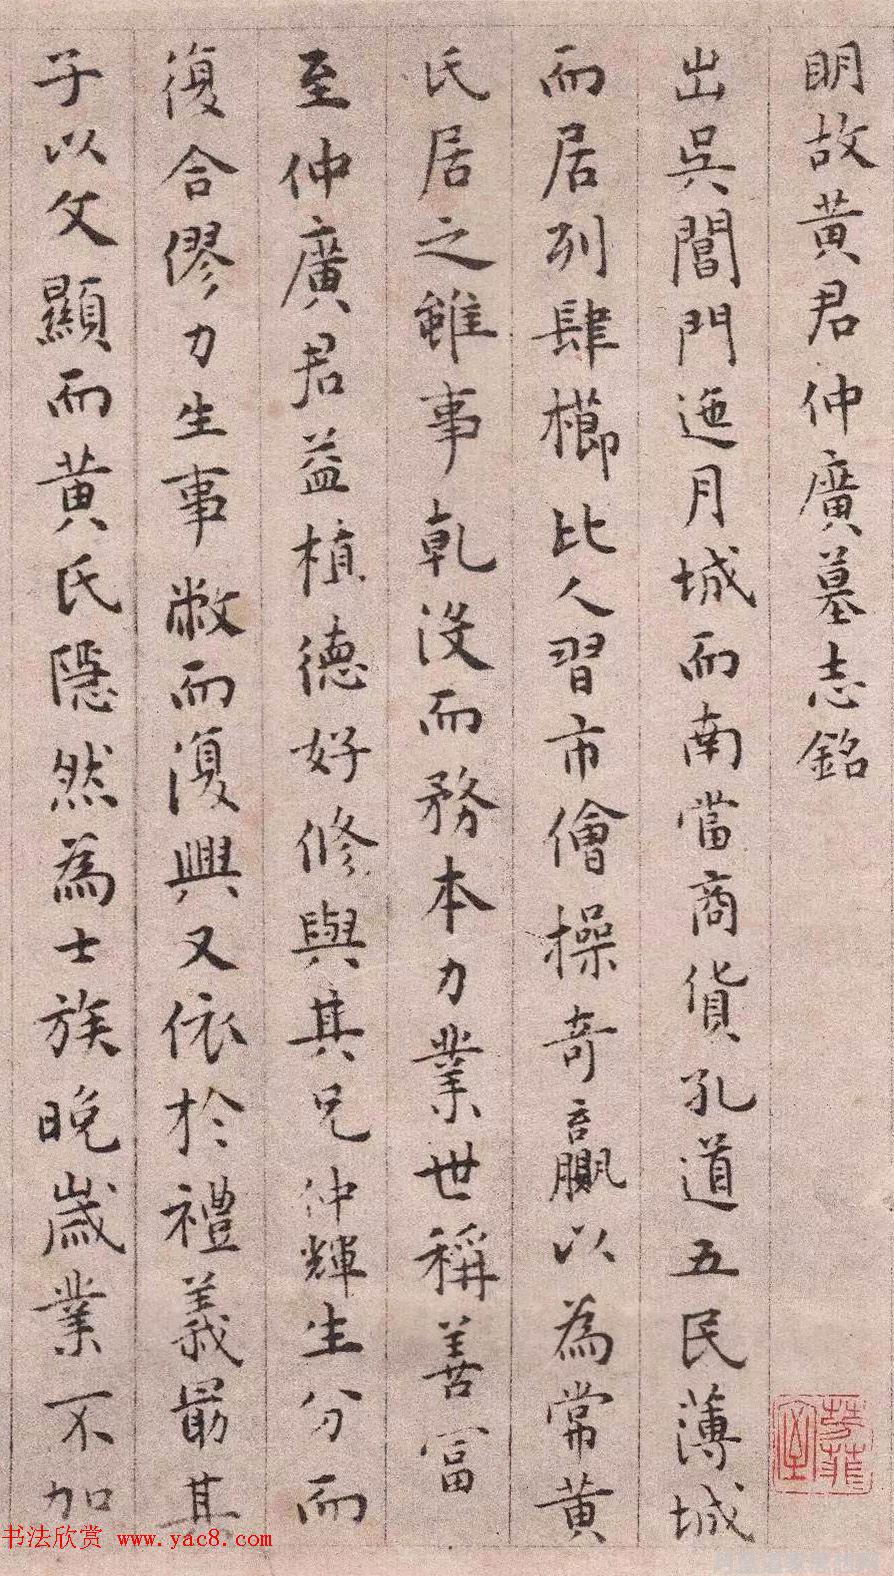 明故黄君仲廣墓志銘
出吳閶門迤月城而南當商貨孔道五民薄城
而居列肆櫛比人習市儈操奇贏以為常黄
氏居之雖事乾没而務本力業世稱善富
至仲廣君益植德好修與其兄仲輝生分而
復合僇力生事敝而復興又依於禮義最其
子以文顯而黄氏隱然為士族晚歲業不加
书法欣赏 www.yac8.com